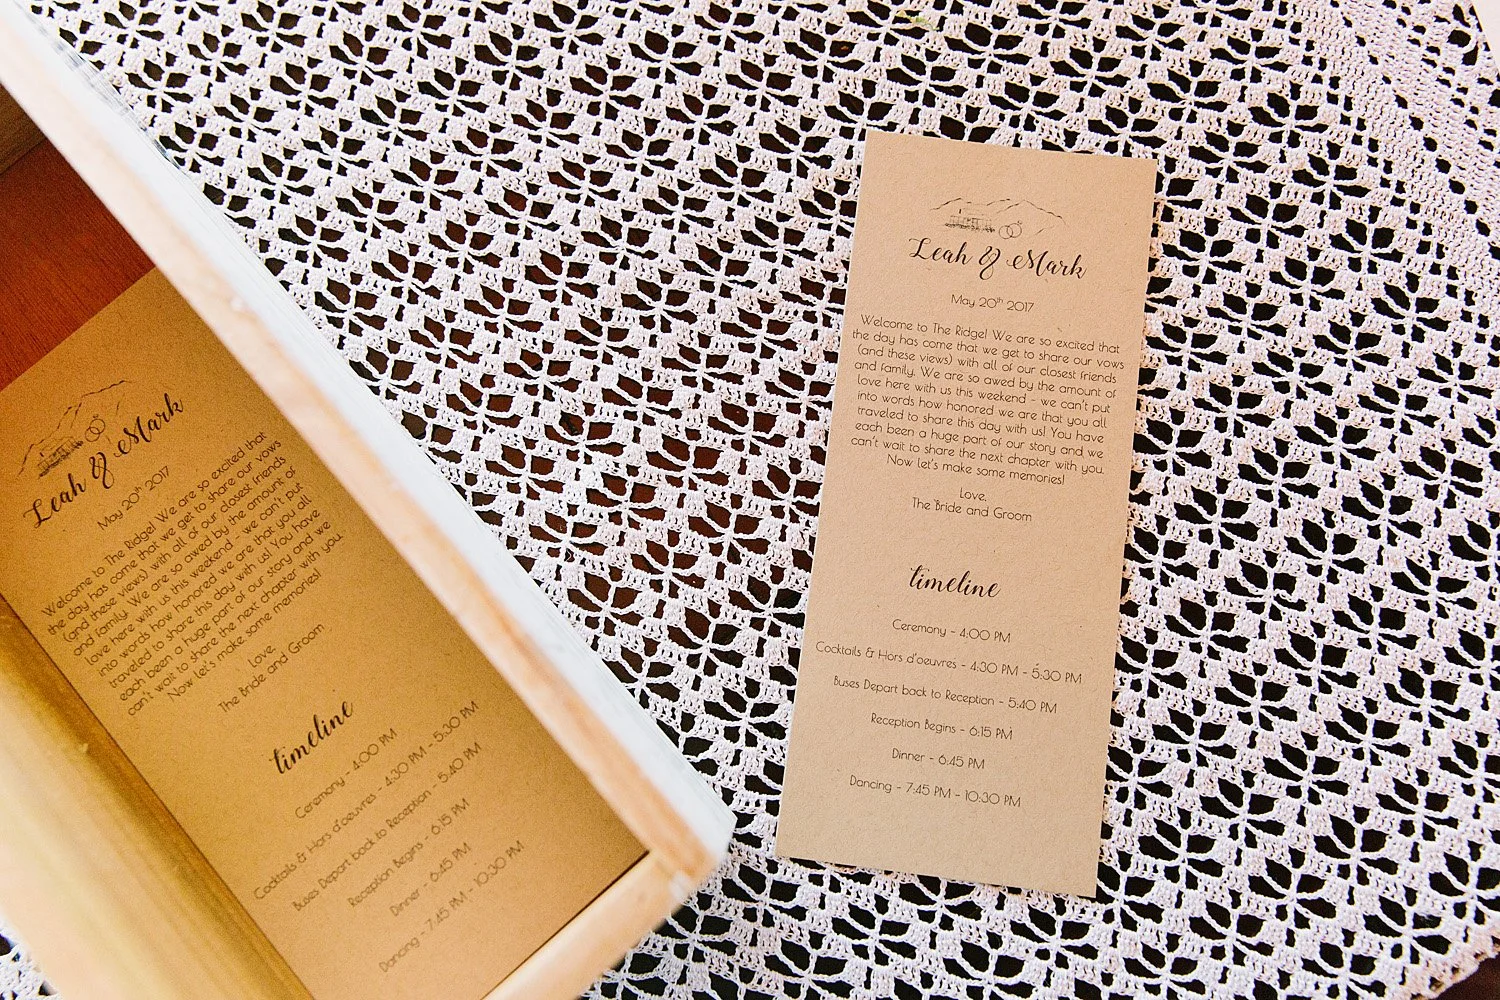 Leah & Mark
May 20th 2017
Welcome to The Ridge! We are so excited that
the day has come that we get to share our vows
(and these views) with all of our closest friends
and family. We are so awed by the amount of
love here with us this weekend - we can't put
into words how honored we are that you all
traveled to share this day with us! You have
each been a huge part of our story and we
can't wait to share the next chapter with you.
Now let's make some memories!
Love,
The Bride and Groom
timeline
Ceremony - 4:00 PM
Cocktails & Hors d'oeuvres - 4:30 PM - 5:30 PM
Buses Depart back to Reception - 5:40 PM
Reception Begins - 6:15 PM
Dinner - 6:45 PM
Dancing - 7:45 PM - 10:30 PM
Leah & Mark
May 20th 2017
Welcome to The Ridge! We are so excited that
the day has come that we get to share our vows
(and these views) with all of our closest friends
and family. We are so awed by the amount of
love here with us this weekend - we can't put
into words how honored we are that you all
traveled to share this day with us! You have
each been a huge part of our story and we
can't wait to share the next chapter with you.
Now let's make some memories!
Love,
The Bride and Groom
timeline
Ceremony - 4:00 PM
Cocktails & Hors d'oeuvres - 4:30 PM - 5:30 PM
Buses Depart back to Reception - 5:40 PM
Reception Begins - 6:15 PM
Dinner - 6:45 PM
Dancing - 7:45 PM - 10:30 PM